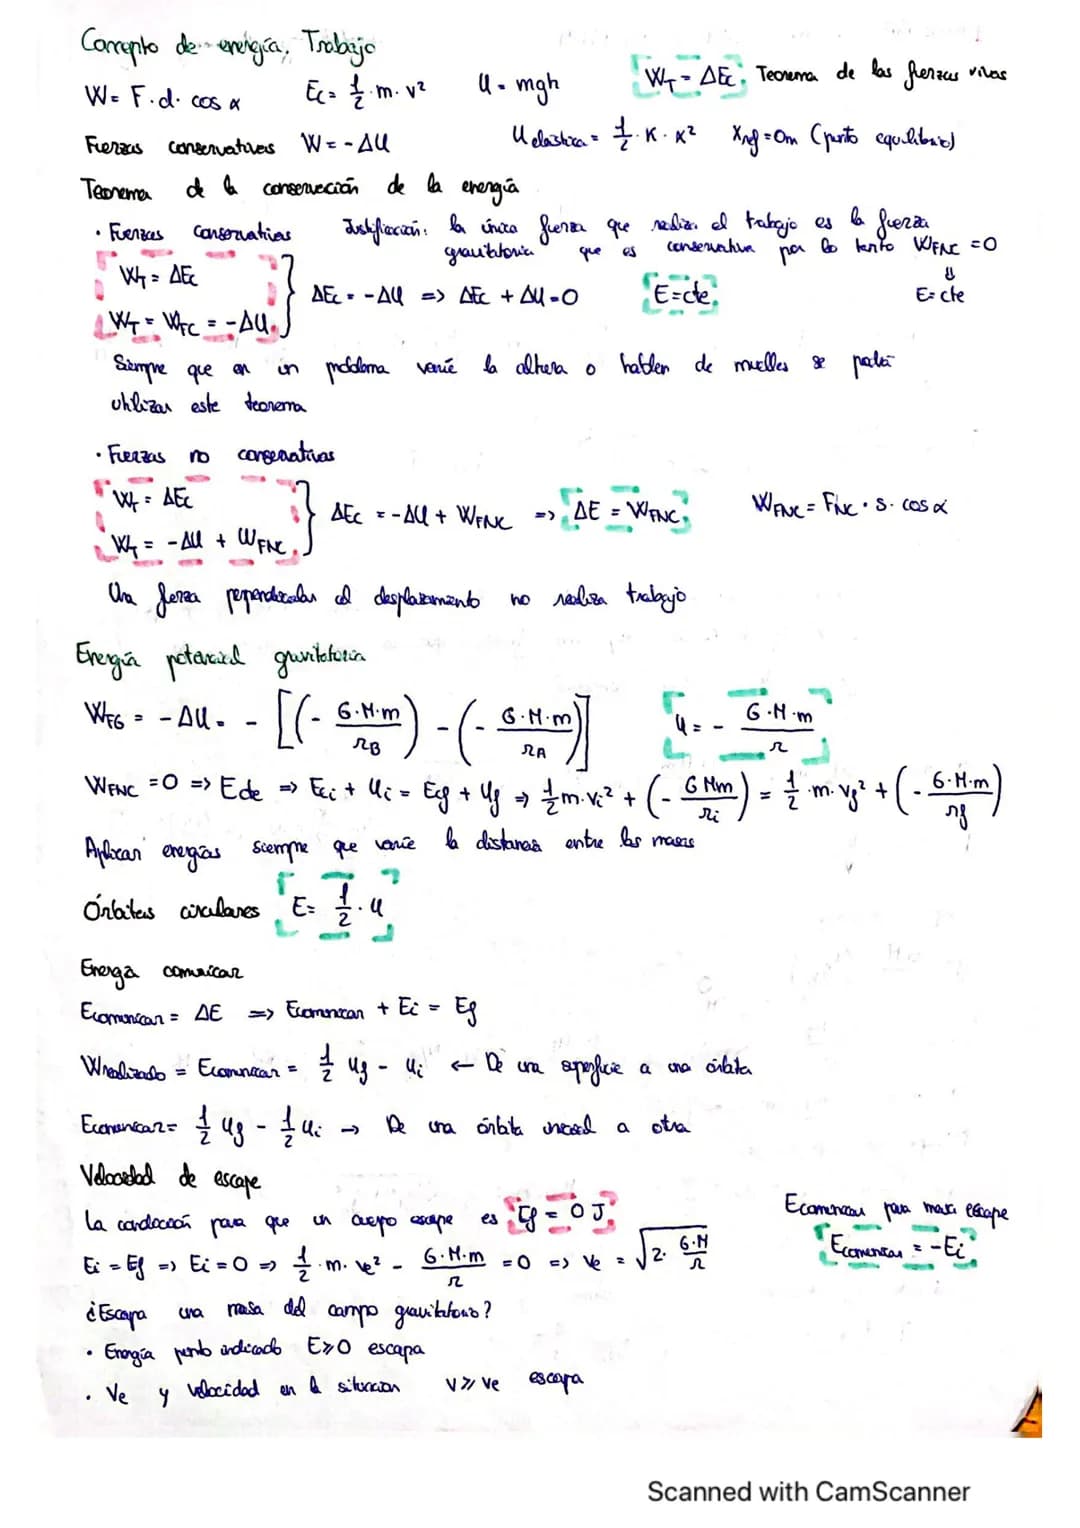 Concepto de energía. Trabajo
W = F·d·cos α   Ec = 1/2·m·v²   U = mgh   WT = ΔEc; Teorema de las fuerzas vivas
Fuerzas conservativas W = -ΔU   U elástica = 1/2·K·x²   Xref = 0m (punto equilibrio)
Teorema de la conservación de la energía
· Fuerzas conservativas   Justificación: la única fuerza que realiza el trabajo es la fuerza
gravitatoria que es conservativa por lo tanto WFNC = 0
WT = ΔEc
⇓
WT = WFC = -ΔU   } ΔEc = -ΔU => ΔEc + ΔU = 0   E=cte   E= cte
Siempre que en un problema varíe la altura o hablen de muelles se podrá
utilizar este teorema
· Fuerzas no conservativas
WT = ΔEc
WT = -ΔU + WFNC   } ΔEc = -ΔU + WFNC => ΔE = WFNC   WFNC = FNC·s·cos α
Una fuerza perpendicular al desplazamiento no realiza trabajo
Energía potencial gravitatoria
WFG = -ΔU = -[(-G·M·m/rB) - (-G·M·m/rA)]   U = - G·M·m/r
WFNC = 0 => Ecte => Eci + Ui = Ecf + Uf => 1/2 m·vi² + (-G M m/ri) = 1/2·m·vf² + (-G·M·m/rf)
Aplicar energías siempre que varíe la distancia entre las masas
Órbitas circulares E = 1/2·U
Energía comunicar
Ecomunicar = ΔE => Ecomunicar + Ei = Ef
Wrealizado = Ecomunicar = 1/2 Uf - Ui ← De una superficie a una órbita
Ecomunicar = 1/2 Uf - 1/2 Ui → De una órbita inicial a otra
Velocidad de escape
La condición para que un cuerpo escape es Ef = 0 J   Ecomunicar para masa escape
Ei = Ef => Ei = 0 => 1/2·m·ve² - G·M·m/r = 0 => ve = √(2·G·M/r)   Ecomunicar = -Ei
¿Escapa una masa del campo gravitatorio?
· Energía punto indicado E≥0 escapa
· Ve y velocidad en la situación V ≥ Ve escapa
Scanned with CamScanner